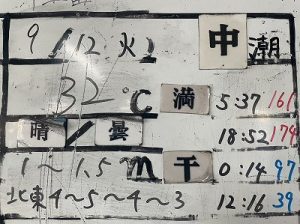 9/12 火 中潮
32℃ 満 5:37 161
晴/曇 18:52 174
1〜1.5m 干 0:14 97
北東4〜5〜4〜3 12:16 39